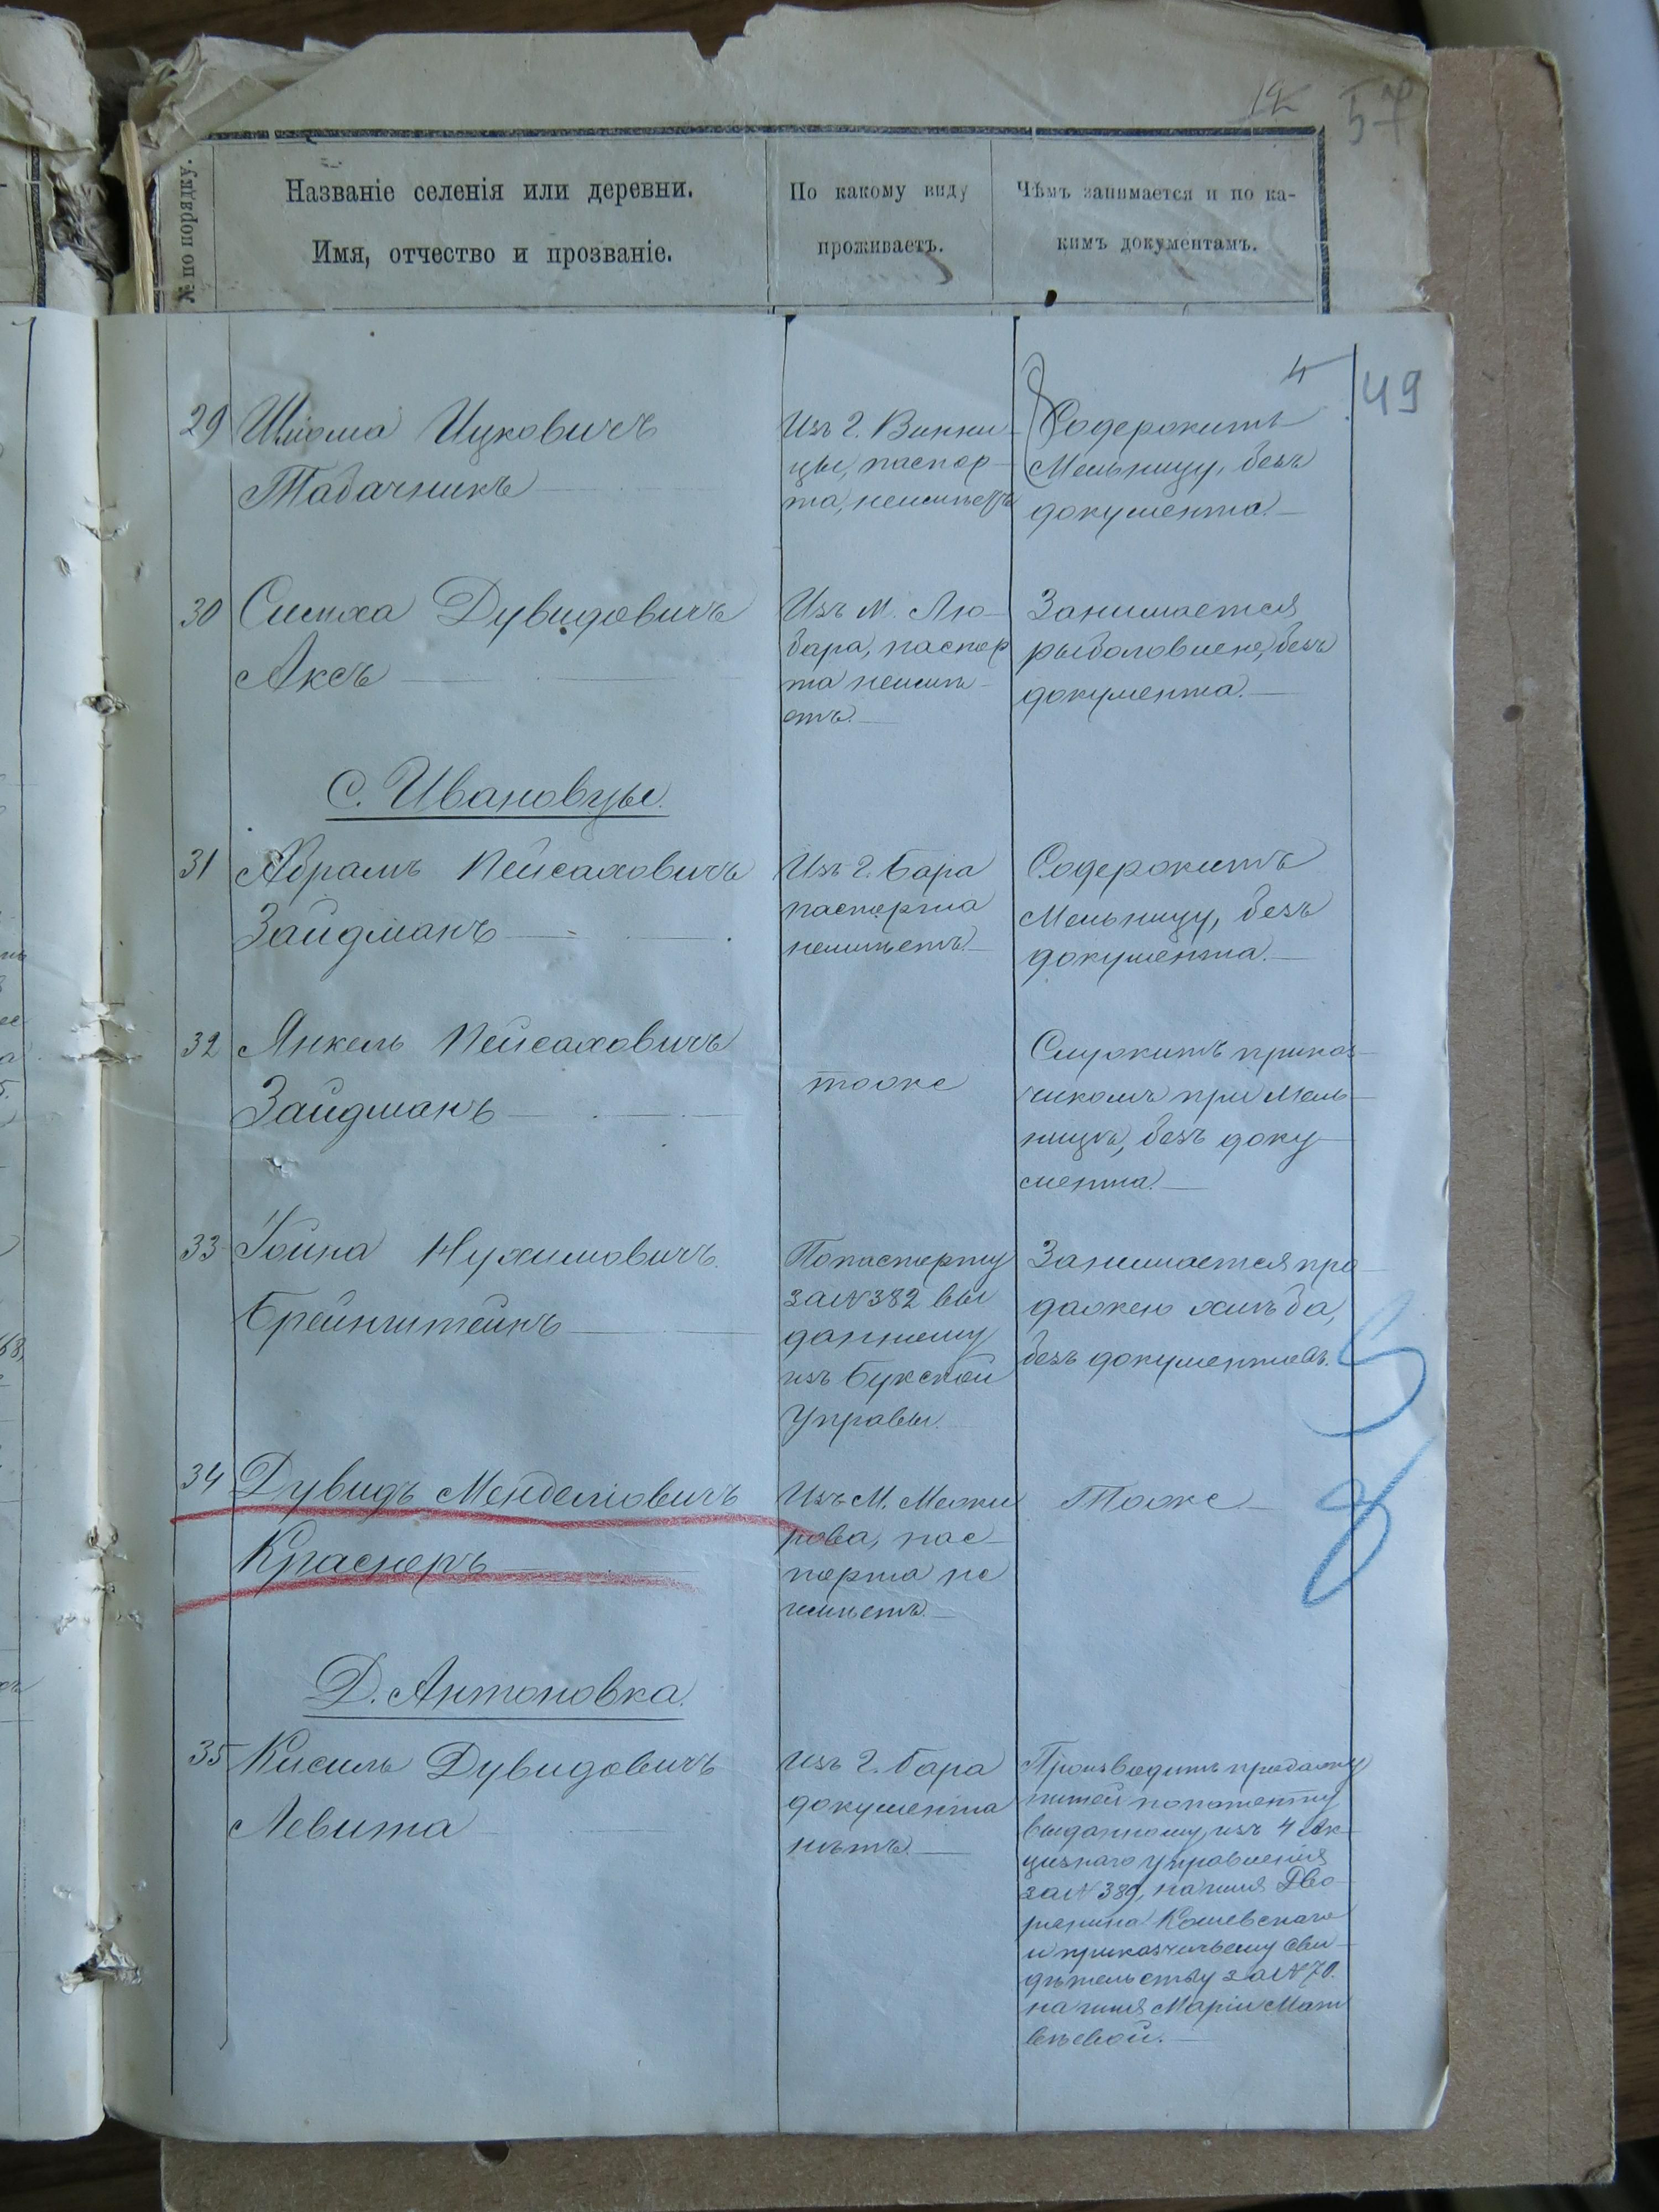 12
57
№ по порядку.
Названіе селенія или деревни.
Имя, отчество и прозваніе.
По какому виду
проживаетъ.
Чѣмъ занимается и по ка-
кимъ документамъ.
4
49
29
Шлиома Ицковичъ
Табачникъ
Изъ г. Винни-
цы, паспор-
та, неимѣетъ
Содержитъ
Мельницу, безъ
документа.
30
Симха Дувидовичъ
Аксъ
Изъ М. Лю-
бара, паспор
та неимѣ-
етъ.
Занимается
рыболовлею, безъ
документа.
С. Ивановцы.
31
Абрамъ Пейсаховичъ
Зайдманъ
Изъ г. Бара
паспорта
неимѣетъ.
Содержитъ
Мельницу, безъ
документа.
32
Янкель Пейсаховичъ
Зайдманъ
тоже
Служитъ приказ-
чикомъ при Мель-
ницѣ, безъ доку-
мента.
33
Іойна Нухимовичъ
Брейнштейнъ
По паспорту
за № 382 вы
данному
изъ Букской
Управы.
Занимается про-
дажею хлѣба,
безъ документовъ.
34
Дувидъ Менделіовичъ
Краснеръ
Изъ М. Межи
рова, пас-
порта не
имѣетъ.
Тоже
Д. Антоновка.
35
Кисиль Дувидовичъ
Левита
Изъ г. Бара
документа
нѣтъ.
Производитъ продажу
питей по патенту
выданному изъ 4 Ак-
цизнаго управленія
за № 389, на имя Дво-
рянина
и приказчичьему сви-
дѣтельству за № 70.
на имя Маріи Мат
вѣевой.